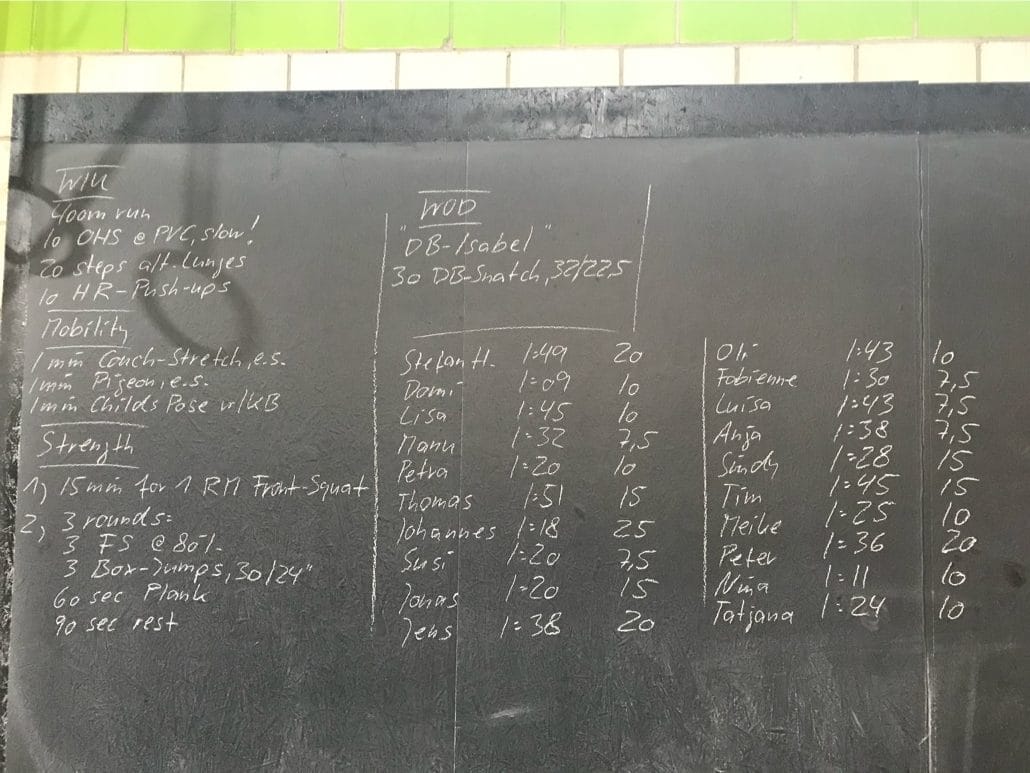 WU
400m run
10 OHS @ PVC, slow!
20 steps alt. Lunges
10 HR-Push-ups
Mobility
1 min Couch-Stretch, e.s.
1 min Pigeon, e.s.
1 min Childs Pose w/KB
Strength
1) 15 min for 1 RM Front-Squat
2) 3 rounds:
3 FS @ 80%
3 Box-Jumps, 30/24"
60 sec Plank
90 sec rest
WOD
"DB-Isabel"
30 DB-Snatch, 32/22,5
Stefan H. 1:49 20
Domi 1:09 10
Lisa 1:45 10
Manu 1:32 7,5
Petra 1:20 10
Thomas 1:51 15
Johannes 1:18 25
Susi 1:20 7,5
Jonas 1:20 15
Jens 1:38 20
Oli 1:43 10
Fabienne 1:30 7,5
Luisa 1:43 7,5
Anja 1:38 7,5
Sindy 1:28 15
Tim 1:45 15
Meike 1:25 10
Peter 1:36 20
Nina 1:11 10
Tatjana 1:24 10